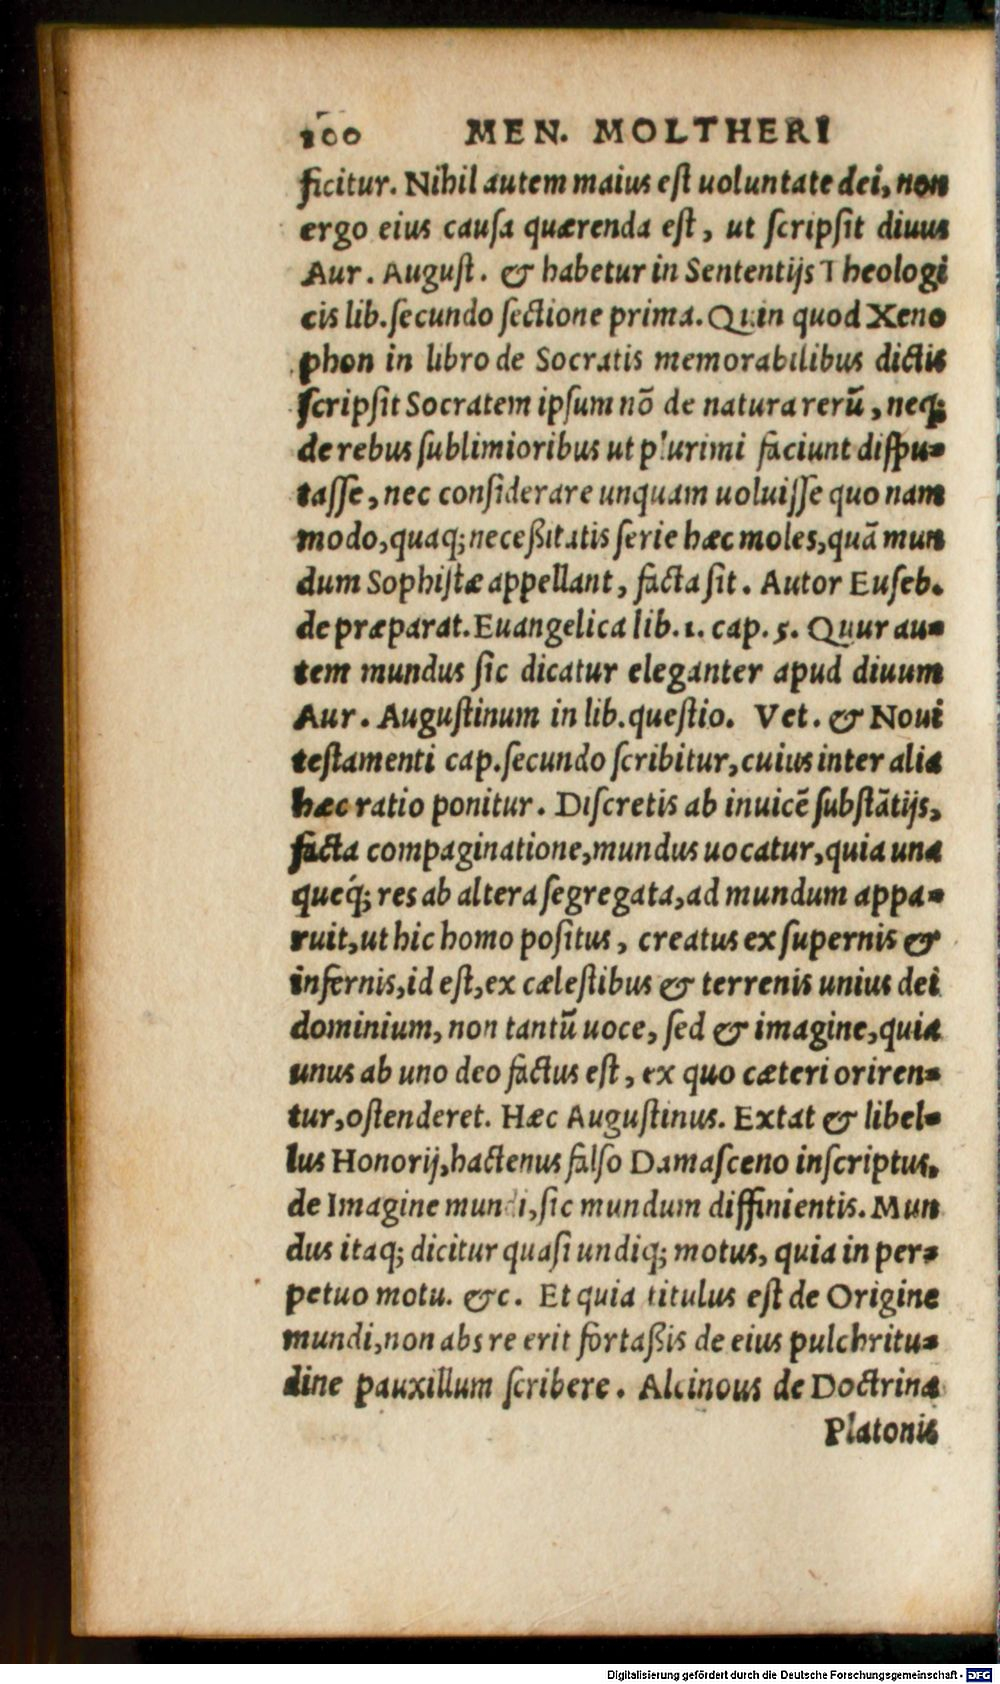 100 MEN. MOLTHERI
ficitur. Nihil autem maius est uoluntate dei, non
ergo eius causa quærenda est, ut scripsit diuus
Aur. August. & habetur in Sententijs Theologi
cis lib. secundo sectione prima. Quin quod Xeno
phon in libro de Socratis memorabilibus dictis
scripsit Socratem ipsum nõ de natura rerũ, neq;
de rebus sublimioribus ut plurimi faciunt dispu-
tasse, nec considerare unquam uoluisse quo nam
modo, quaq; neceßitatis serie hæc moles, quã mun
dum Sophistæ appellant, facta sit. Autor Euseb.
de præparat. Euangelica lib. 1. cap. 5. Quur au-
tem mundus sic dicatur eleganter apud diuum
Aur. Augustinum in lib. questio. Vet. & Noui
testamenti cap. secundo scribitur, cuius inter alia
hæc ratio ponitur. Discretis ab inuicẽ substãtijs,
facta compaginatione, mundus uocatur, quia una
queq́; res ab altera segregata, ad mundum appa-
ruit, ut hic homo positus, creatus ex supernis &
infernis, id est, ex cælestibus & terrenis unius dei
dominium, non tantũ uoce, sed & imagine, quia
unus ab uno deo factus est, ex quo cæteri oriren-
tur, ostenderet. Hæc Augustinus. Extat & libel-
lus Honorij, hactenus falso Damasceno inscriptus,
de Imagine mundi, sic mundum diffinientis. Mun
dus itaq; dicitur quasi undiq; motus, quia in per-
petuo motu. &c. Et quia titulus est de Origine
mundi, non abs re erit fortaßis de eius pulchritu-
dine pauxillum scribere. Alcinous de Doctrina
Platonis
Digitalisierung gefördert durch die Deutsche Forschungsgemeinschaft - DFG